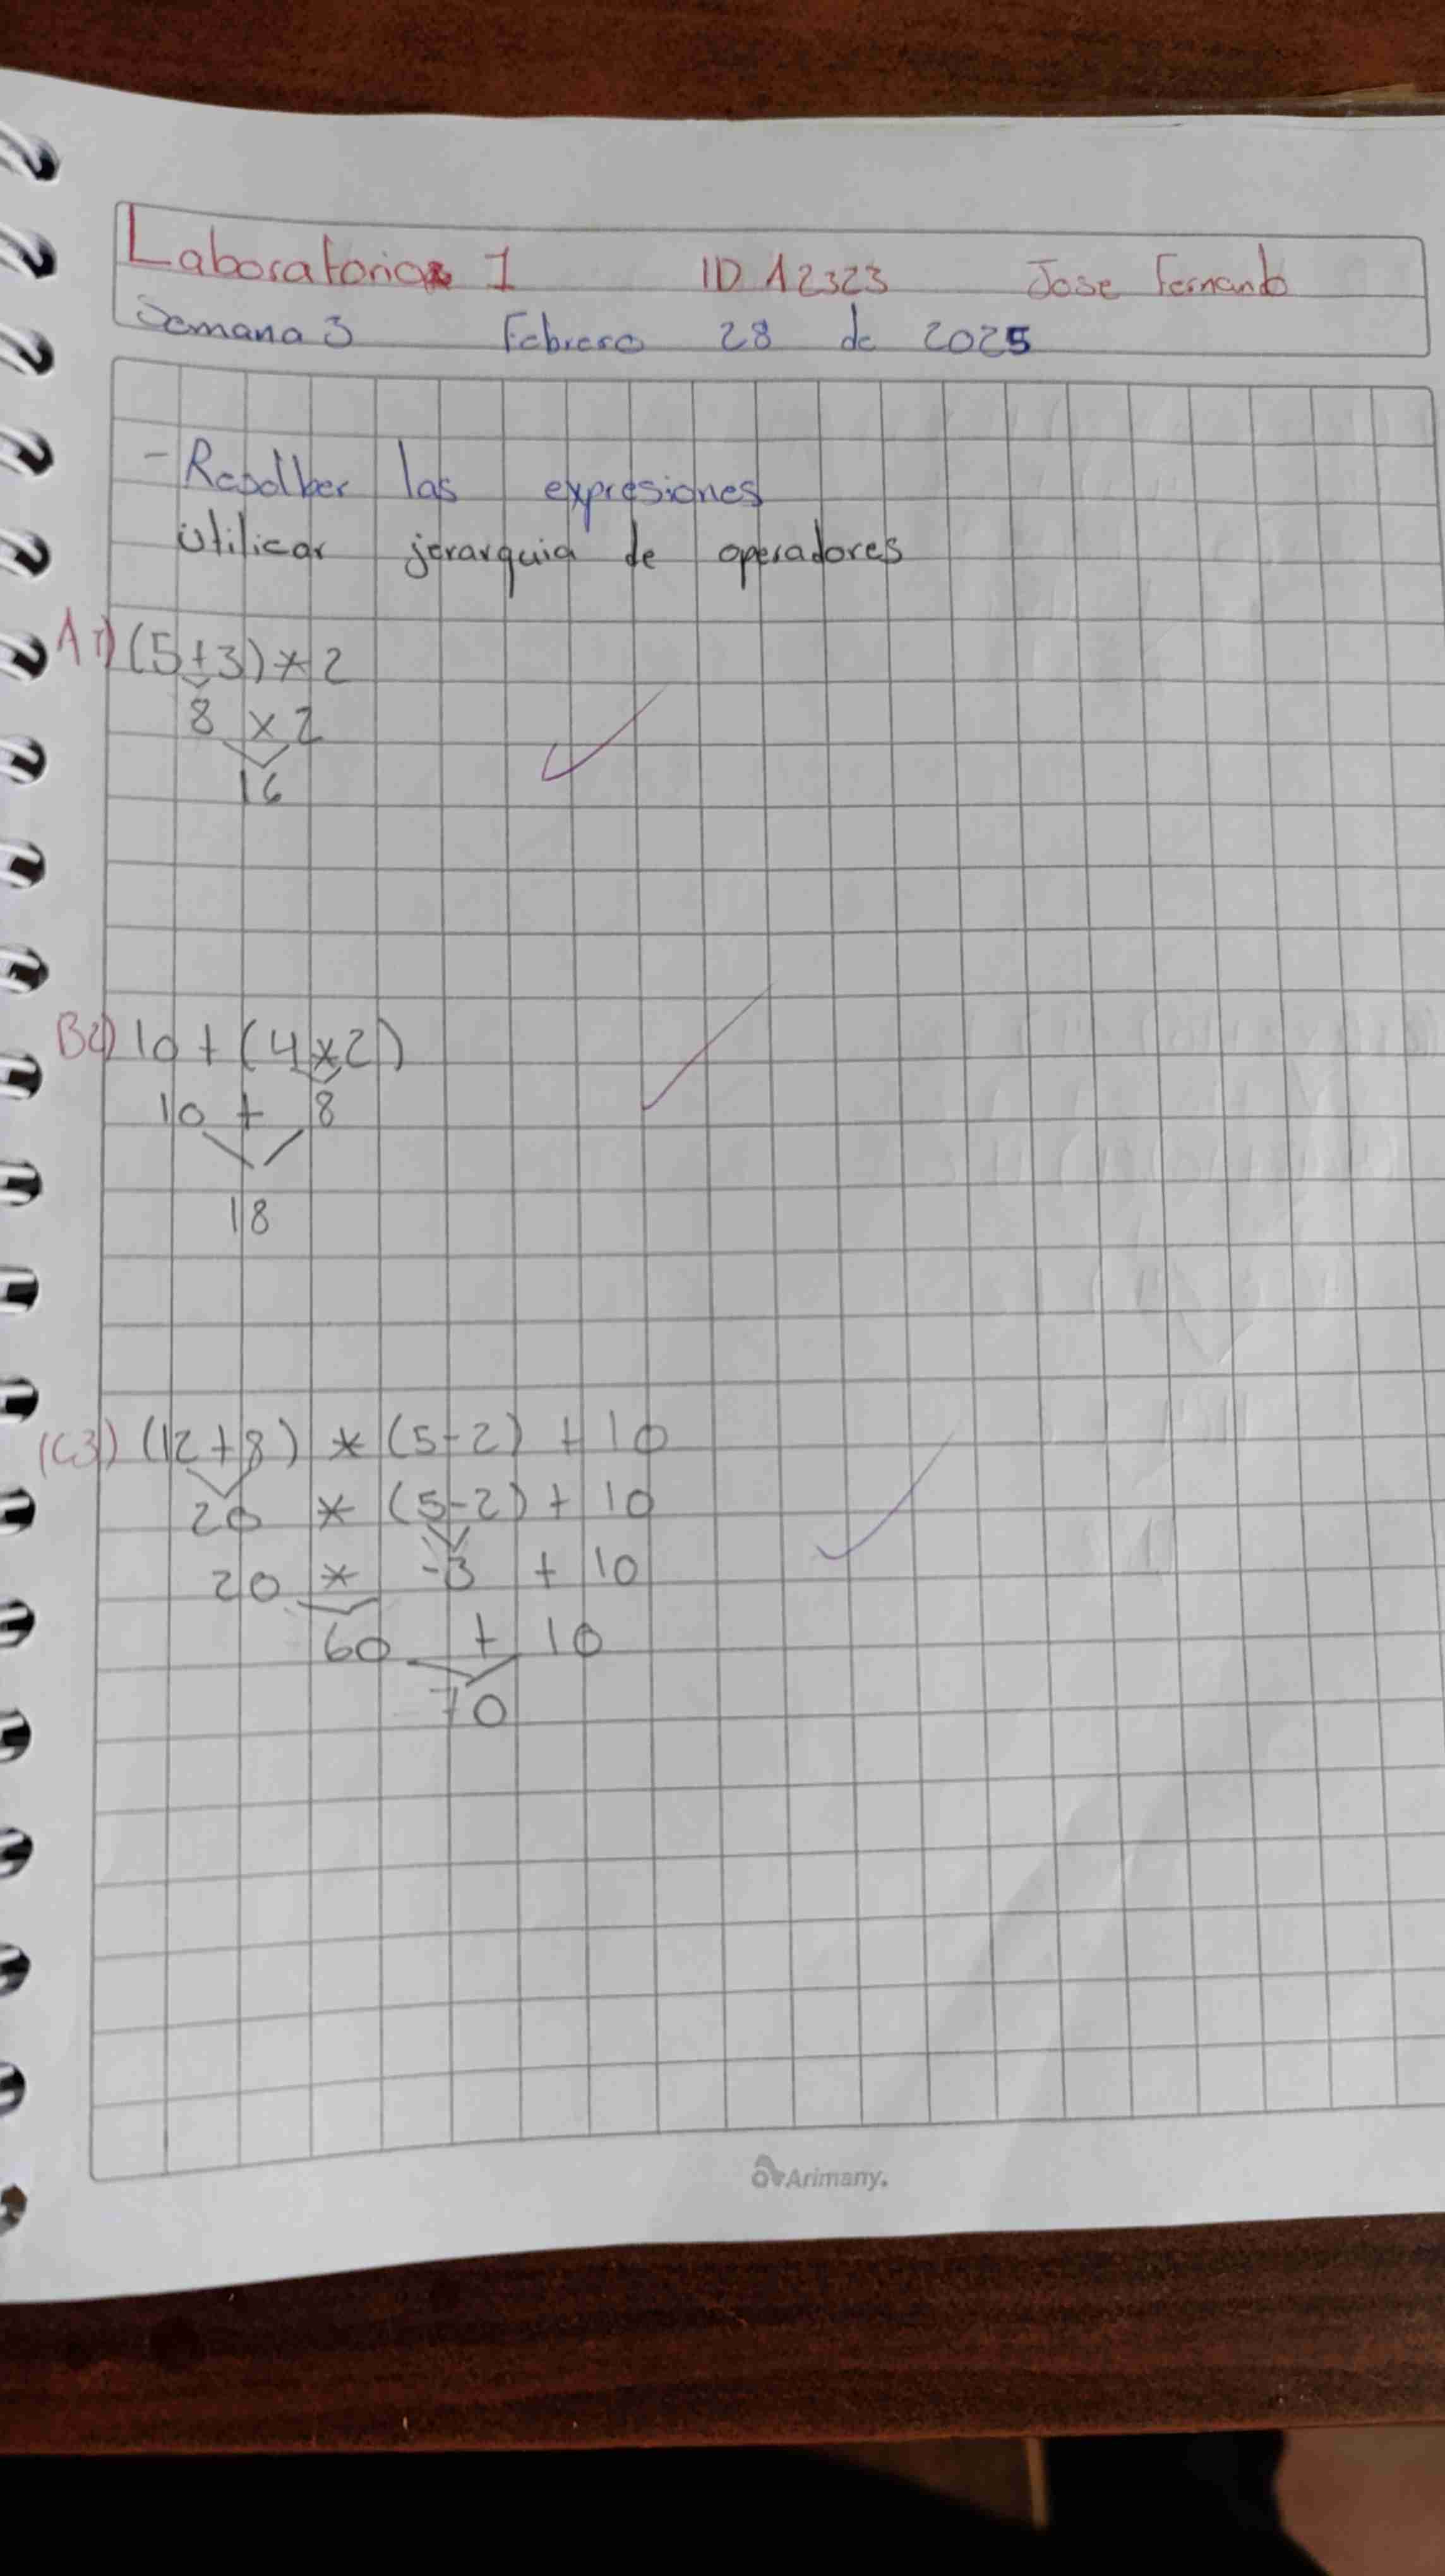 Laboratorio 1 ID 12323 Jose Fernando
Semana 3 Febrero 28 de 2025
- Resolber las expresiones
Utilicar jerarquia de operadores
A1) (5+3) * 2
8 x 2
16
B2) 10 + (4x2)
10 + 8
18
(C3) (12+8) * (5-2) + 10
20 * (5-2) + 10
20 * -3 + 10
60 + 10
70
Arimany.